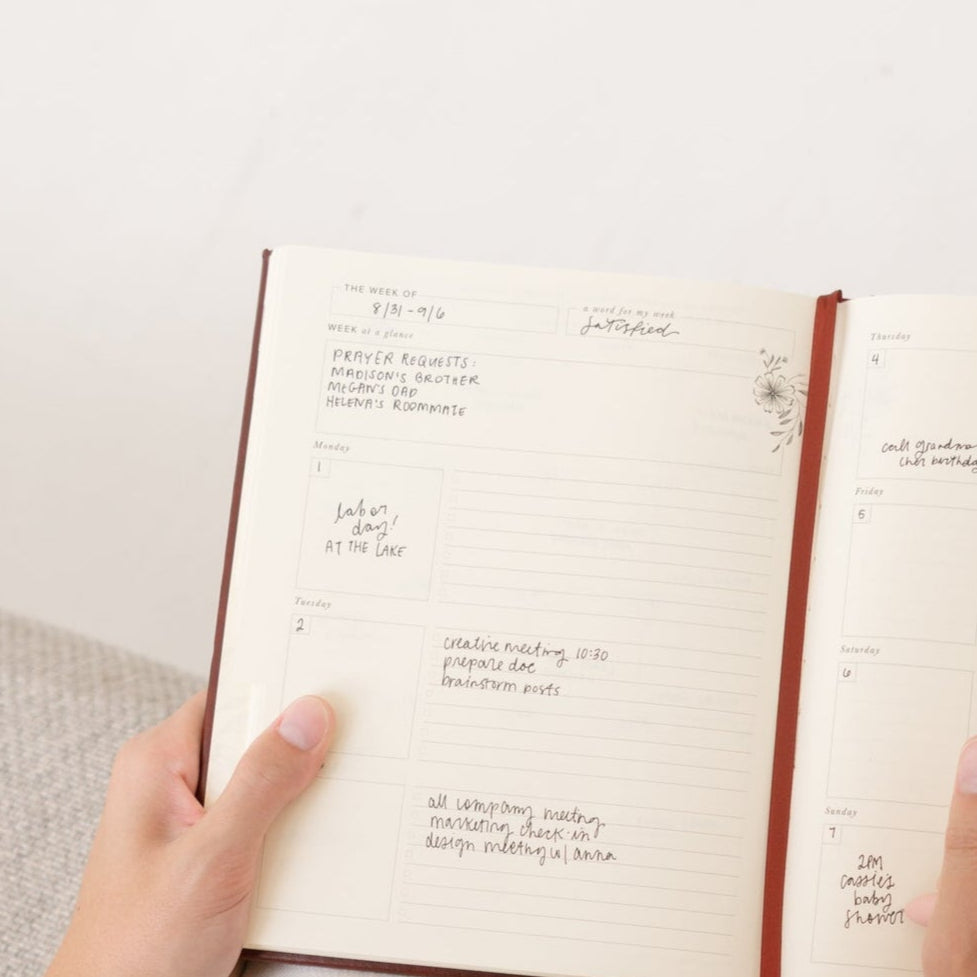 THE WEEK OF
8/31 - 9/6
a word for my week
satisfied
WEEK at a glance
PRAYER REQUESTS:
MADISON'S BROTHER
MEGAN'S DAD
HELENA'S ROOMMATE
Monday
1
labor
day!
AT THE LAKE
Tuesday
2
creative meeting 10:30
prepare doc
brainstorm posts
all company meeting
marketing check-in
design meeting w/ anna
Thursday
4
call grandma
birthday
Friday
5
Saturday
6
Sunday
7
2PM
cassie's
baby
shower